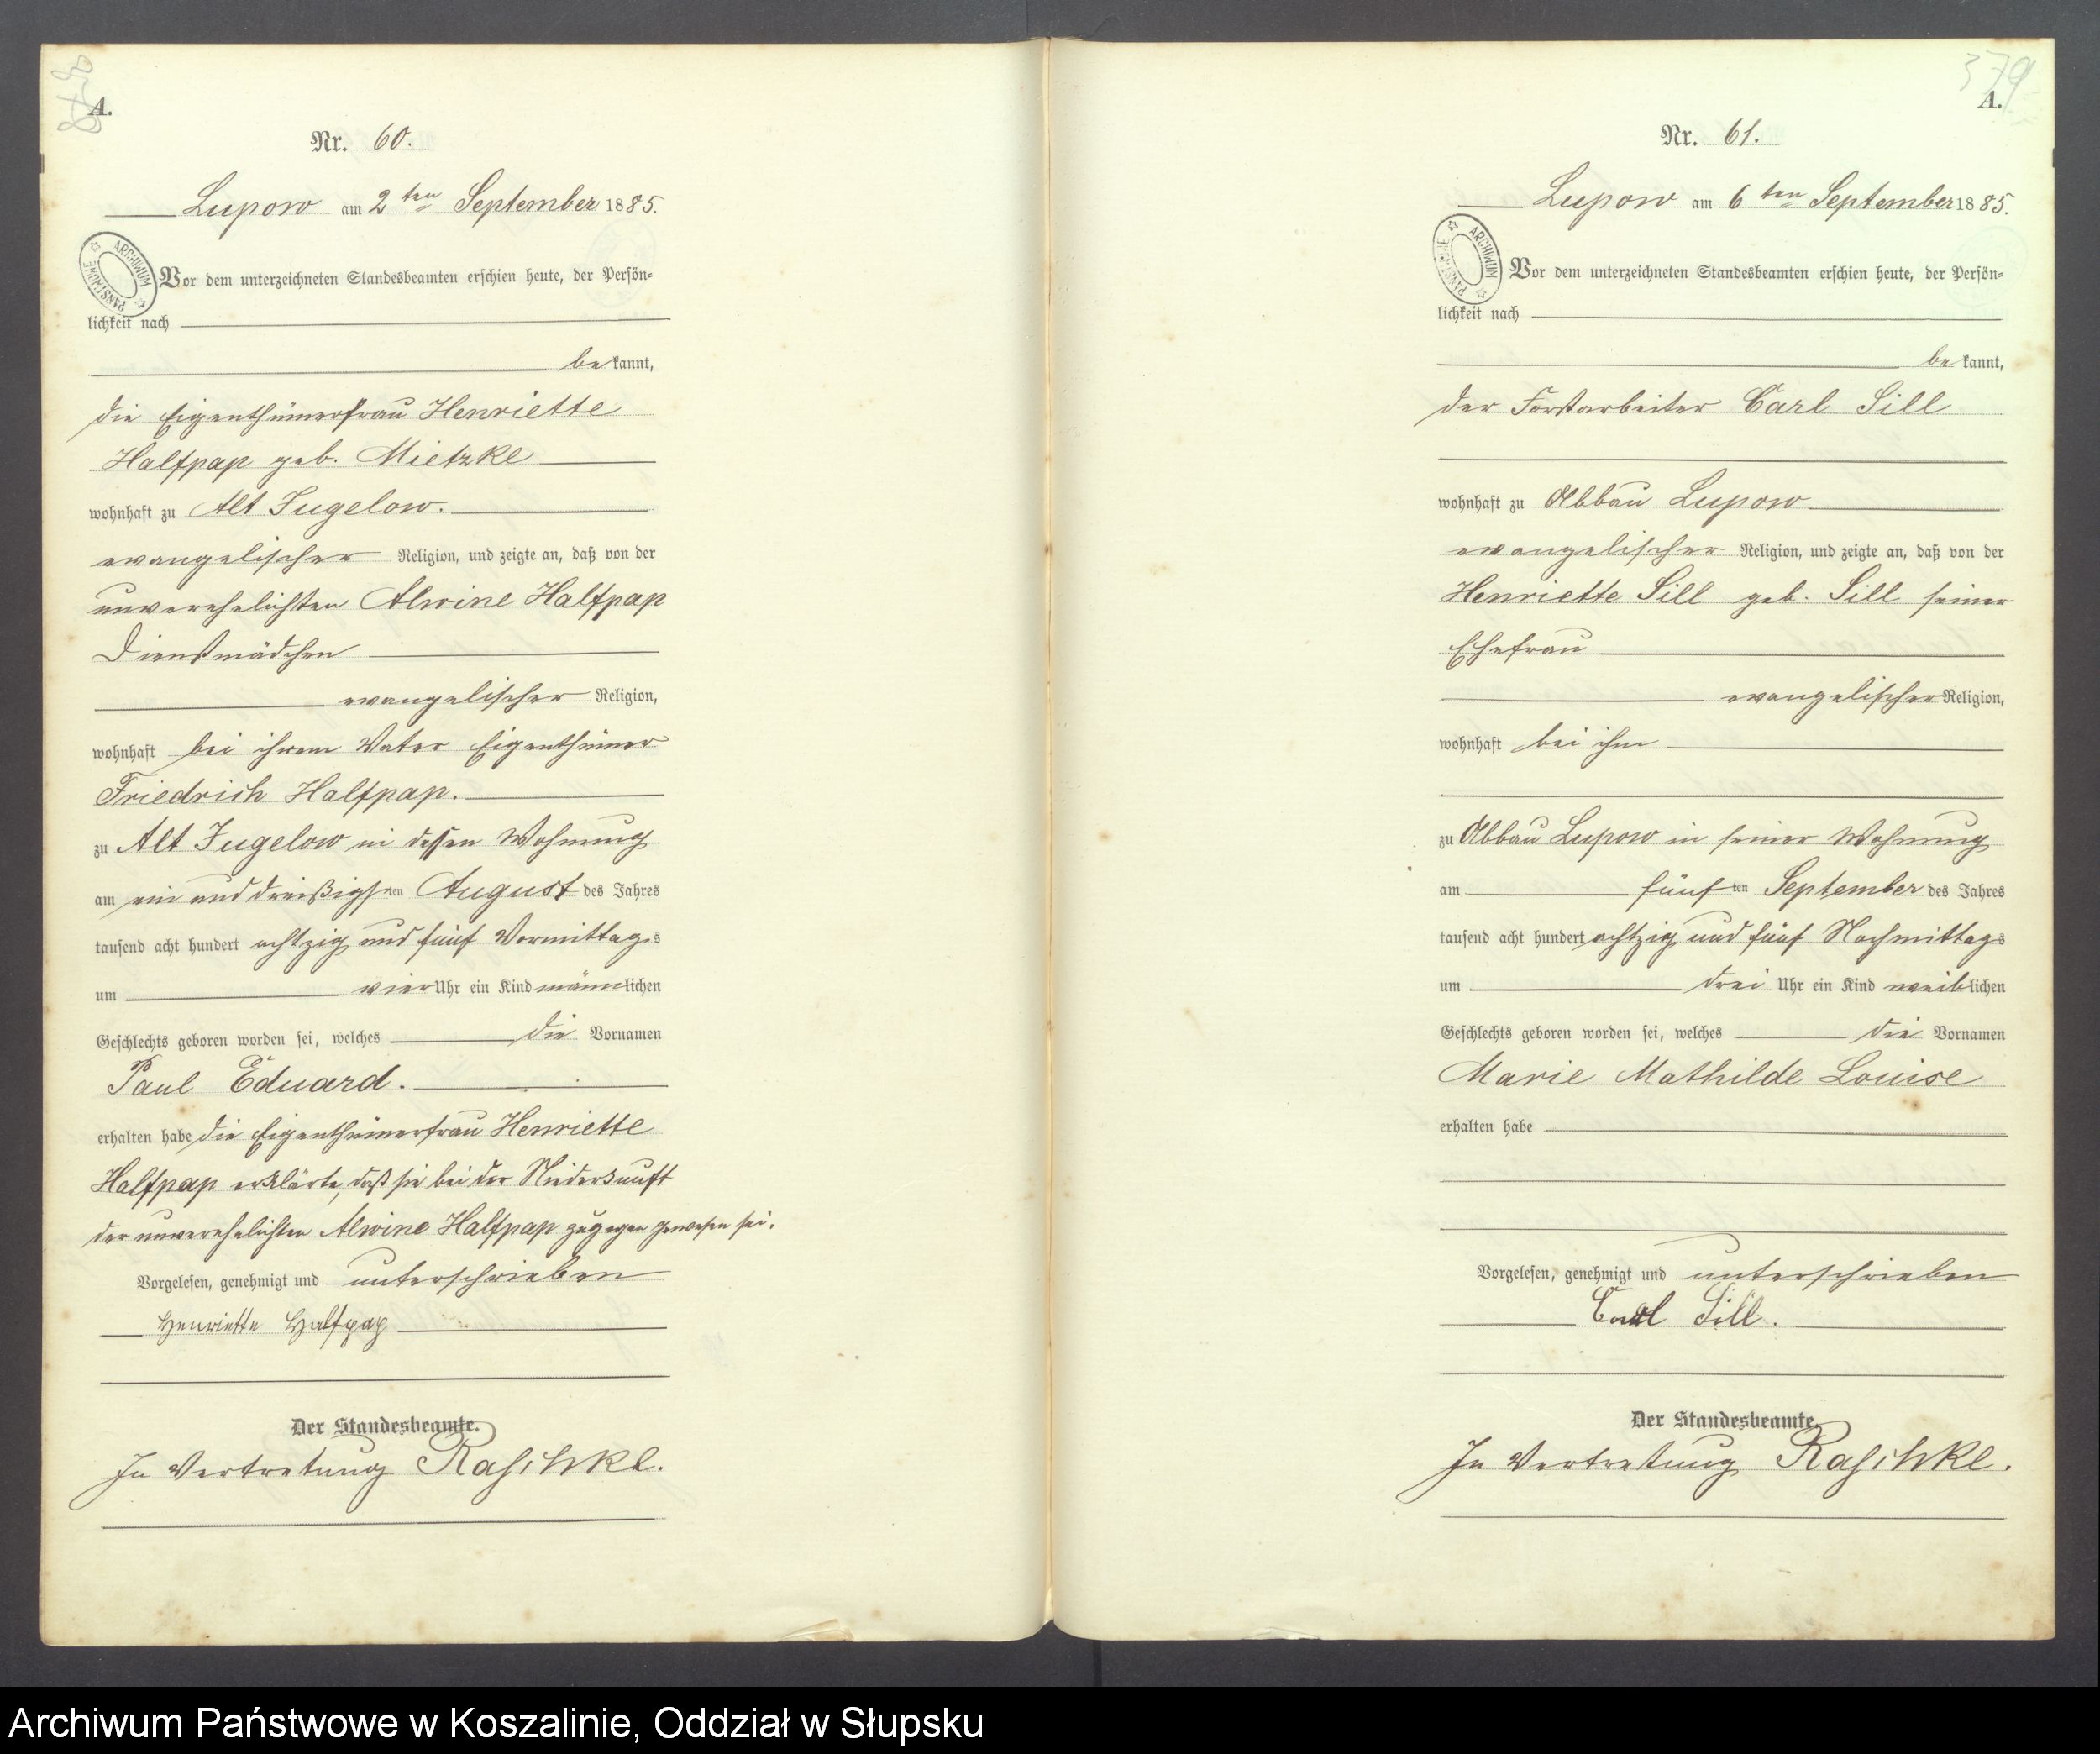 A.
Nr. 60.
Lupow am 2ten September 1885.
Vor dem unterzeichneten Standesbeamten erschien heute, der Persön-
lichkeit nach
bekannt,
die Eigenthümerfrau Henriette
Halfpap geb. Mietzke
wohnhaft zu Alt Jugelow.
evangelischer Religion, und zeigte an, daß von der
unverehelichten Alwine Halfpap
Dienstmädchen
evangelischer Religion,
wohnhaft bei ihrem Vater Eigenthümer
Friedrich Halfpap.
zu Alt Jugelow in dessen Wohnung
am ein und dreißigsten August des Jahres
tausend acht hundert achtzig und fünf Vormittags
um vier Uhr ein Kind männlichen
Geschlechts geboren worden sei, welches die Vornamen
Paul Eduard.
erhalten habe die Eigenthümerfrau Henriette
Halfpap erklärte, daß sie bei der Niederkunft
der unverehelichten Alwine Halfpap zugegen gewesen sei.
Vorgelesen, genehmigt und unterschrieben
Henriette Halfpap
Der Standesbeamte.
In Vertretung Raschke.
ARCHIWUM PAŃSTWOWE
379
A.
Nr. 61.
Lupow am 6ten September 1885.
Vor dem unterzeichneten Standesbeamten erschien heute, der Persön-
lichkeit nach
bekannt,
der Forstarbeiter Carl Sill
wohnhaft zu Abbau Lupow
evangelischer Religion, und zeigte an, daß von der
Henriette Sill geb. Sill seiner
Ehefrau
evangelischer Religion,
wohnhaft bei ihm
zu Abbau Lupow in seiner Wohnung
am fünften September des Jahres
tausend acht hundert achtzig und fünf Nachmittags
um drei Uhr ein Kind weiblichen
Geschlechts geboren worden sei, welches die Vornamen
Marie Mathilde Louise
erhalten habe
Vorgelesen, genehmigt und unterschrieben
Carl Sill.
Der Standesbeamte.
In Vertretung Raschke.
ARCHIWUM PAŃSTWOWE
Archiwum Państwowe w Koszalinie, Oddział w Słupsku